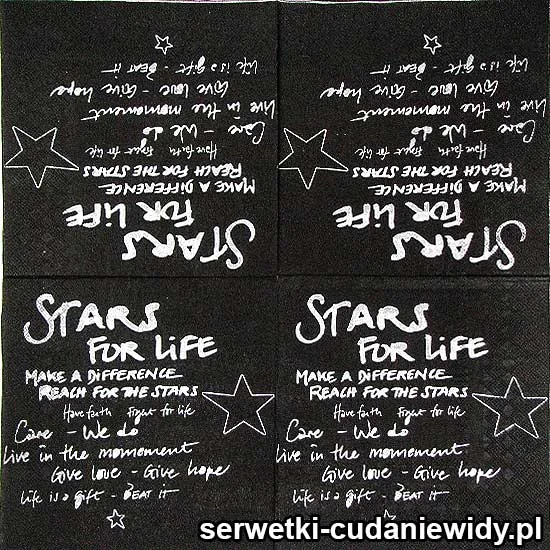 STARS
FOR LiFE
MAKE A DiFFERENCE
REACH FOR THE STARS
Have faith Fight for life
Care - We do
Live in the momoment
Give love - Give hope
Life is a gift - BEAT IT
STARS
FOR LiFE
MAKE A DiFFERENCE
REACH FOR THE STARS
Have faith Fight for life
Care - We do
Live in the momoment
Give love - Give hope
Life is a gift - BEAT IT
STARS
FOR LiFE
MAKE A DiFFERENCE
REACH FOR THE STARS
Have faith Fight for life
Care - We do
Live in the momoment
Give love - Give hope
Life is a gift - BEAT IT
STARS
FOR LiFE
MAKE A DiFFERENCE
REACH FOR THE STARS
Have faith Fight for life
Care - We do
Live in the momoment
Give love - Give hope
Life is a gift - BEAT IT
serwetki-cudaniewidy.pl